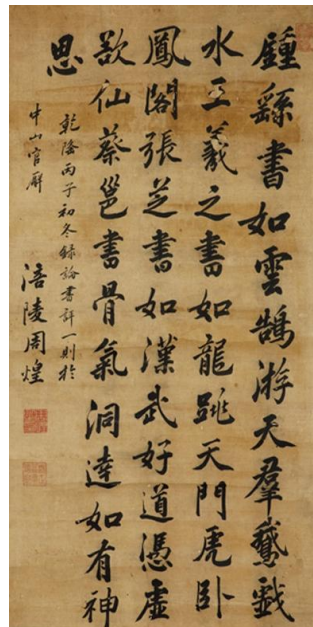 鍾繇書如雲鵠游天羣鵞戲
水王羲之書如龍跳天門虎卧
鳳閣張芝書如漢武好道憑虛
欲仙蔡邕書骨氣洞達如有神
思
乾隆丙子初冬錄論書評一則於
中山官廨
涪陵周煌